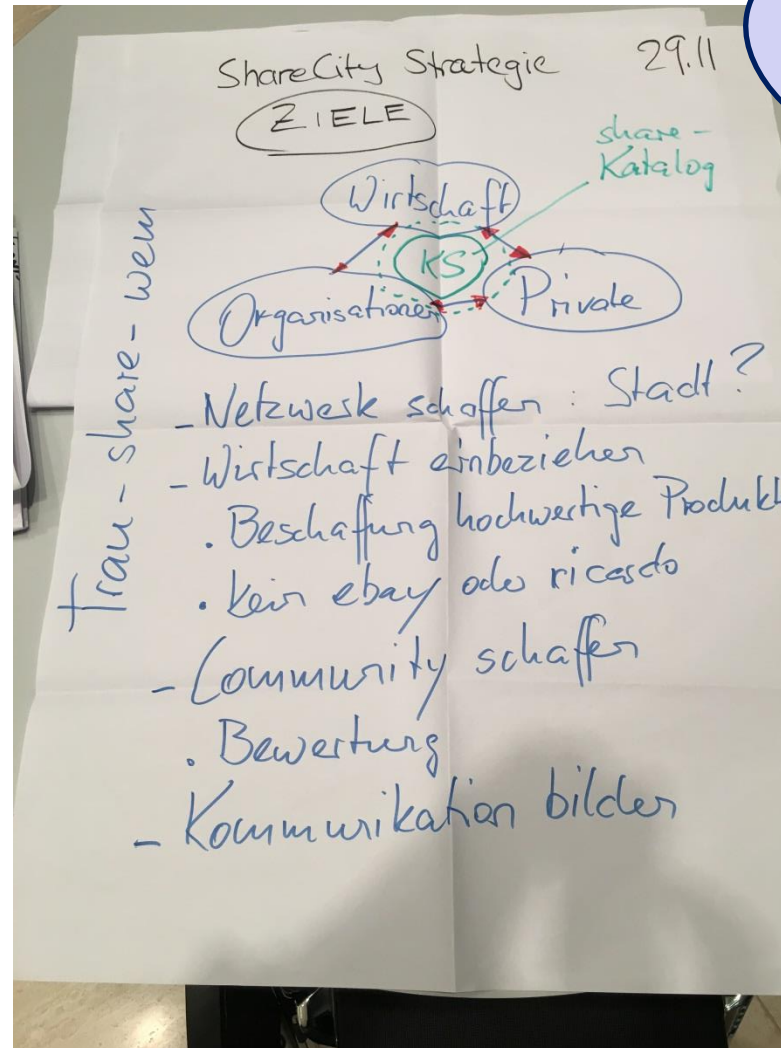 ShareCity Strategie 29.11
ZIELE
share-
Katalog
Wirtschaft
KS
Organisationen
Private
trau-share-wem
- Netzwerk schaffen : Stadt?
- Wirtschaft einbeziehen
. Beschaffung hochwertige Produkt
. kein ebay oder ricardo
- Community schaffen
. Bewertung
- Kommunikation bilden